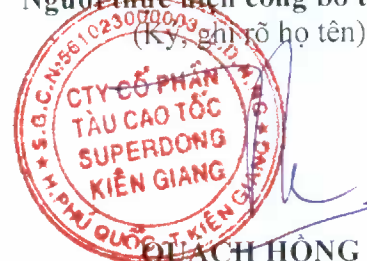 Người thực hiện công bố t
(Ký, ghi rõ họ tên)
S.G.C.N:561023000003
CTY CỔ PHẦN
TÀU CAO TỐC
SUPERDONG
KIÊN GIANG
H.PHÚ QUỐC T.KIÊN GIANG
QUÁCH HỒNG